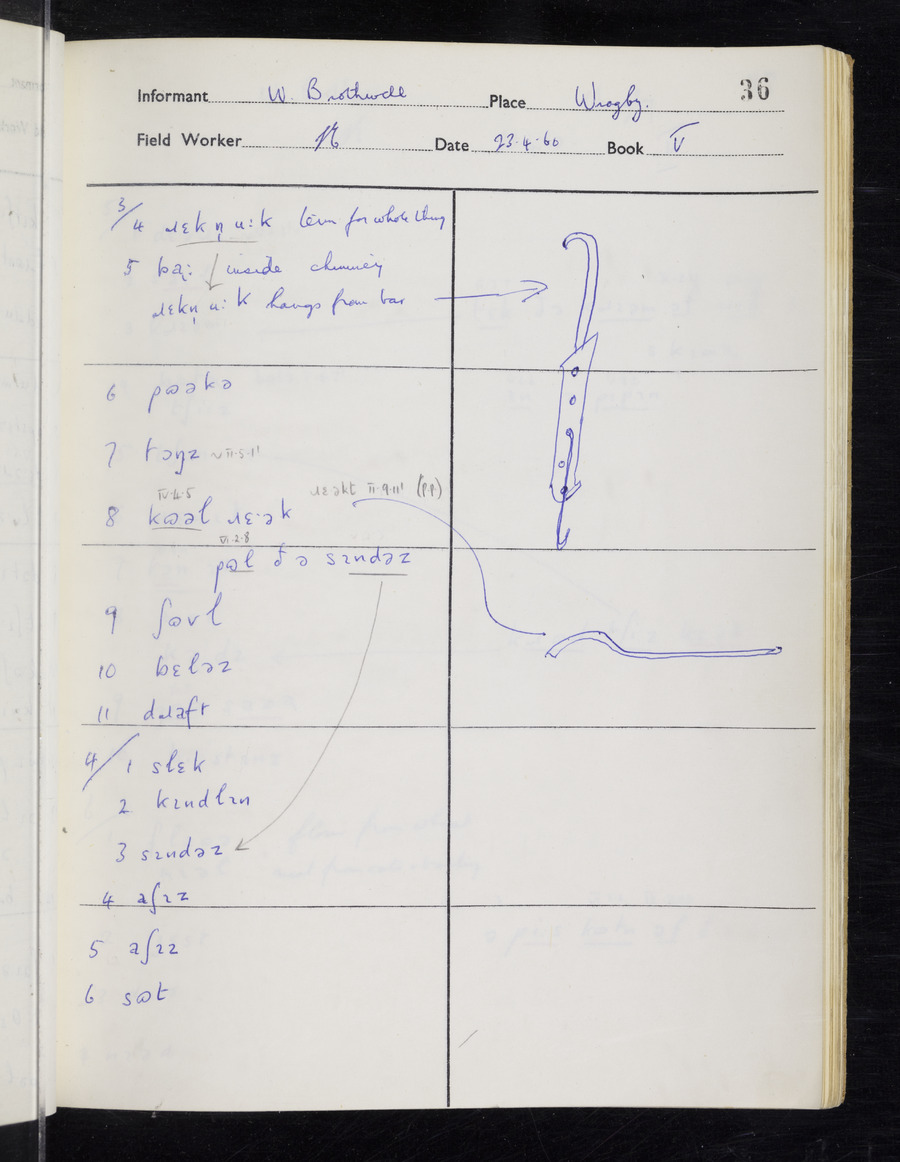 36
Informant W Brothwell Place Wragby.
Field Worker Date 23·4·60 Book V
3/4 ɹɛkn̩ u:k term for whole thing
5 ba: inside chimney
ɹɛkn̩ u:k hangs from bar
6 pɷəkə
7 tɔŋz ~ II·5·11
ɹɛəkt II·9·11' (p.p)
IV·4·5
8 kɷəl ɹɛ·ək
VI·2·8
pɷl ðə sɪndəz
9 ʃɷvl
10 bɛləz
11 dɹaft
4/1 slɛk
2 kɪndlɪn
3 sɪndəz
4 aʃɪz
5 aʃɪz
6 sɷt